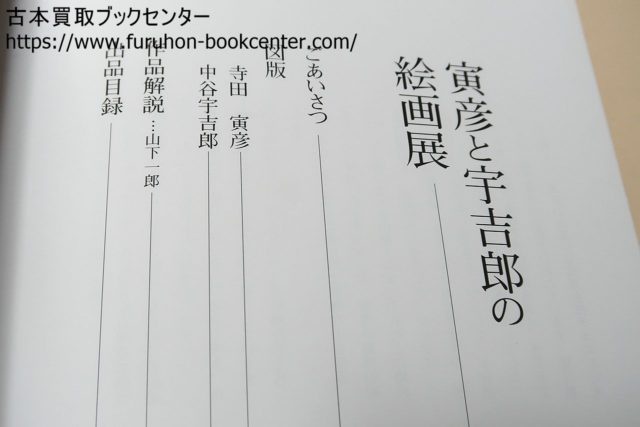 古本買取ブックセンター
https://www.furuhon-bookcenter.com/
寅彦と宇吉郎の
絵画展
ごあいさつ
図版
寺田 寅彦
中谷宇吉郎
作品解説…山下一郎
出品目録